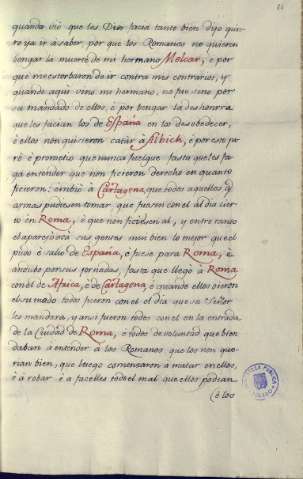 quando vió que les Dios facia tanto bien dijo quie-
ro ya ir à saber, por que los Romanos no quieren
bengar la muerte de mi hermano Melcar, é por
que me estorbaron de ir contra mis contrarios, y
quando aqui vino mi hermano, no fue sino por
su mandado de ellos, é por bengar la deshonrra
que les facian los de España en los desobedecer,
é ellos non quisieron catar à Albich, é por ese pa-
ró é prometio que nunca fuelgue fasta que les fa-
ga entender que non ficieron derecho en quanto
ficieron: é imbió à Cartagena, que todos aquellos q
armas pudiesen tomar que fuesen con el al dia cier-
to en Roma, é que non ficiesen al, y entre tanto
el aparejó sus gentes mui bien lo mejor que el
pudo é salio de España, é fuese para Roma, é
anduvo por sus jornadas, fasta que llegó à Roma
con el de Africa, é de Cartagena, é quando ellos vieron
el su modo todos fueron con el el dia que su Señor
les mandara, y ansi fueron todos con el en la entrada
de la Ciudad de Roma, é todos de voluntad que bien
daban à entender à los Romanos que los non que-
rian bien, que luego comenzaron a matar en ellos,
é à robar é a facelles todo el mal que ellos podian
(é los
BIBLIOTECA PUBLICA
TOLEDO